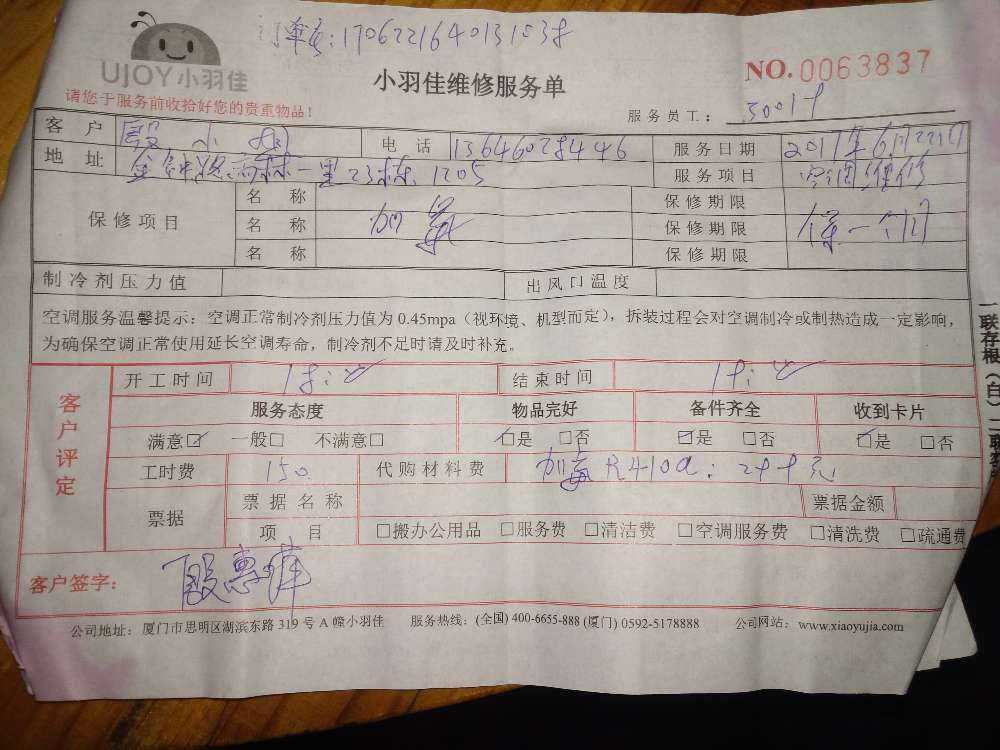 订单号：1706221640131538
UJOY小羽佳
小羽佳维修服务单
NO.0063837
请您于服务前收拾好您的贵重物品！
服务员工：30018
客户 殷小姐 电话 13646028446 服务日期 2017年6月22日
地址 一里23栋1205 服务项目 空调维修
保修项目 名称 保修期限
名称 加氟 保修期限 保一个月
名称 保修期限
制冷剂压力值 出风口温度
空调服务温馨提示：空调正常制冷剂压力值为0.45mpa（视环境、机型而定），拆装过程会对空调制冷或制热造成一定影响，
为确保空调正常使用延长空调寿命，制冷剂不足时请及时补充。
客户评定
开工时间 结束时间
服务态度 物品完好 备件齐全 收到卡片
满意☑ 一般□ 不满意□ ☑是 □否 ☑是 □否 ☑是 □否
工时费 150 代购材料费 R410a：
票据 票据名称 票据金额
项目 □搬办公用品 □服务费 □清洁费 □空调服务费 □清洗费 □疏通费
客户签字：殷惠萍
公司地址：厦门市思明区湖滨东路319号A幢小羽佳 服务热线：(全国) 400-6655-888 (厦门) 0592-5178888 公司网站：www.xiaoyujia.com
一联存根（白）二联客